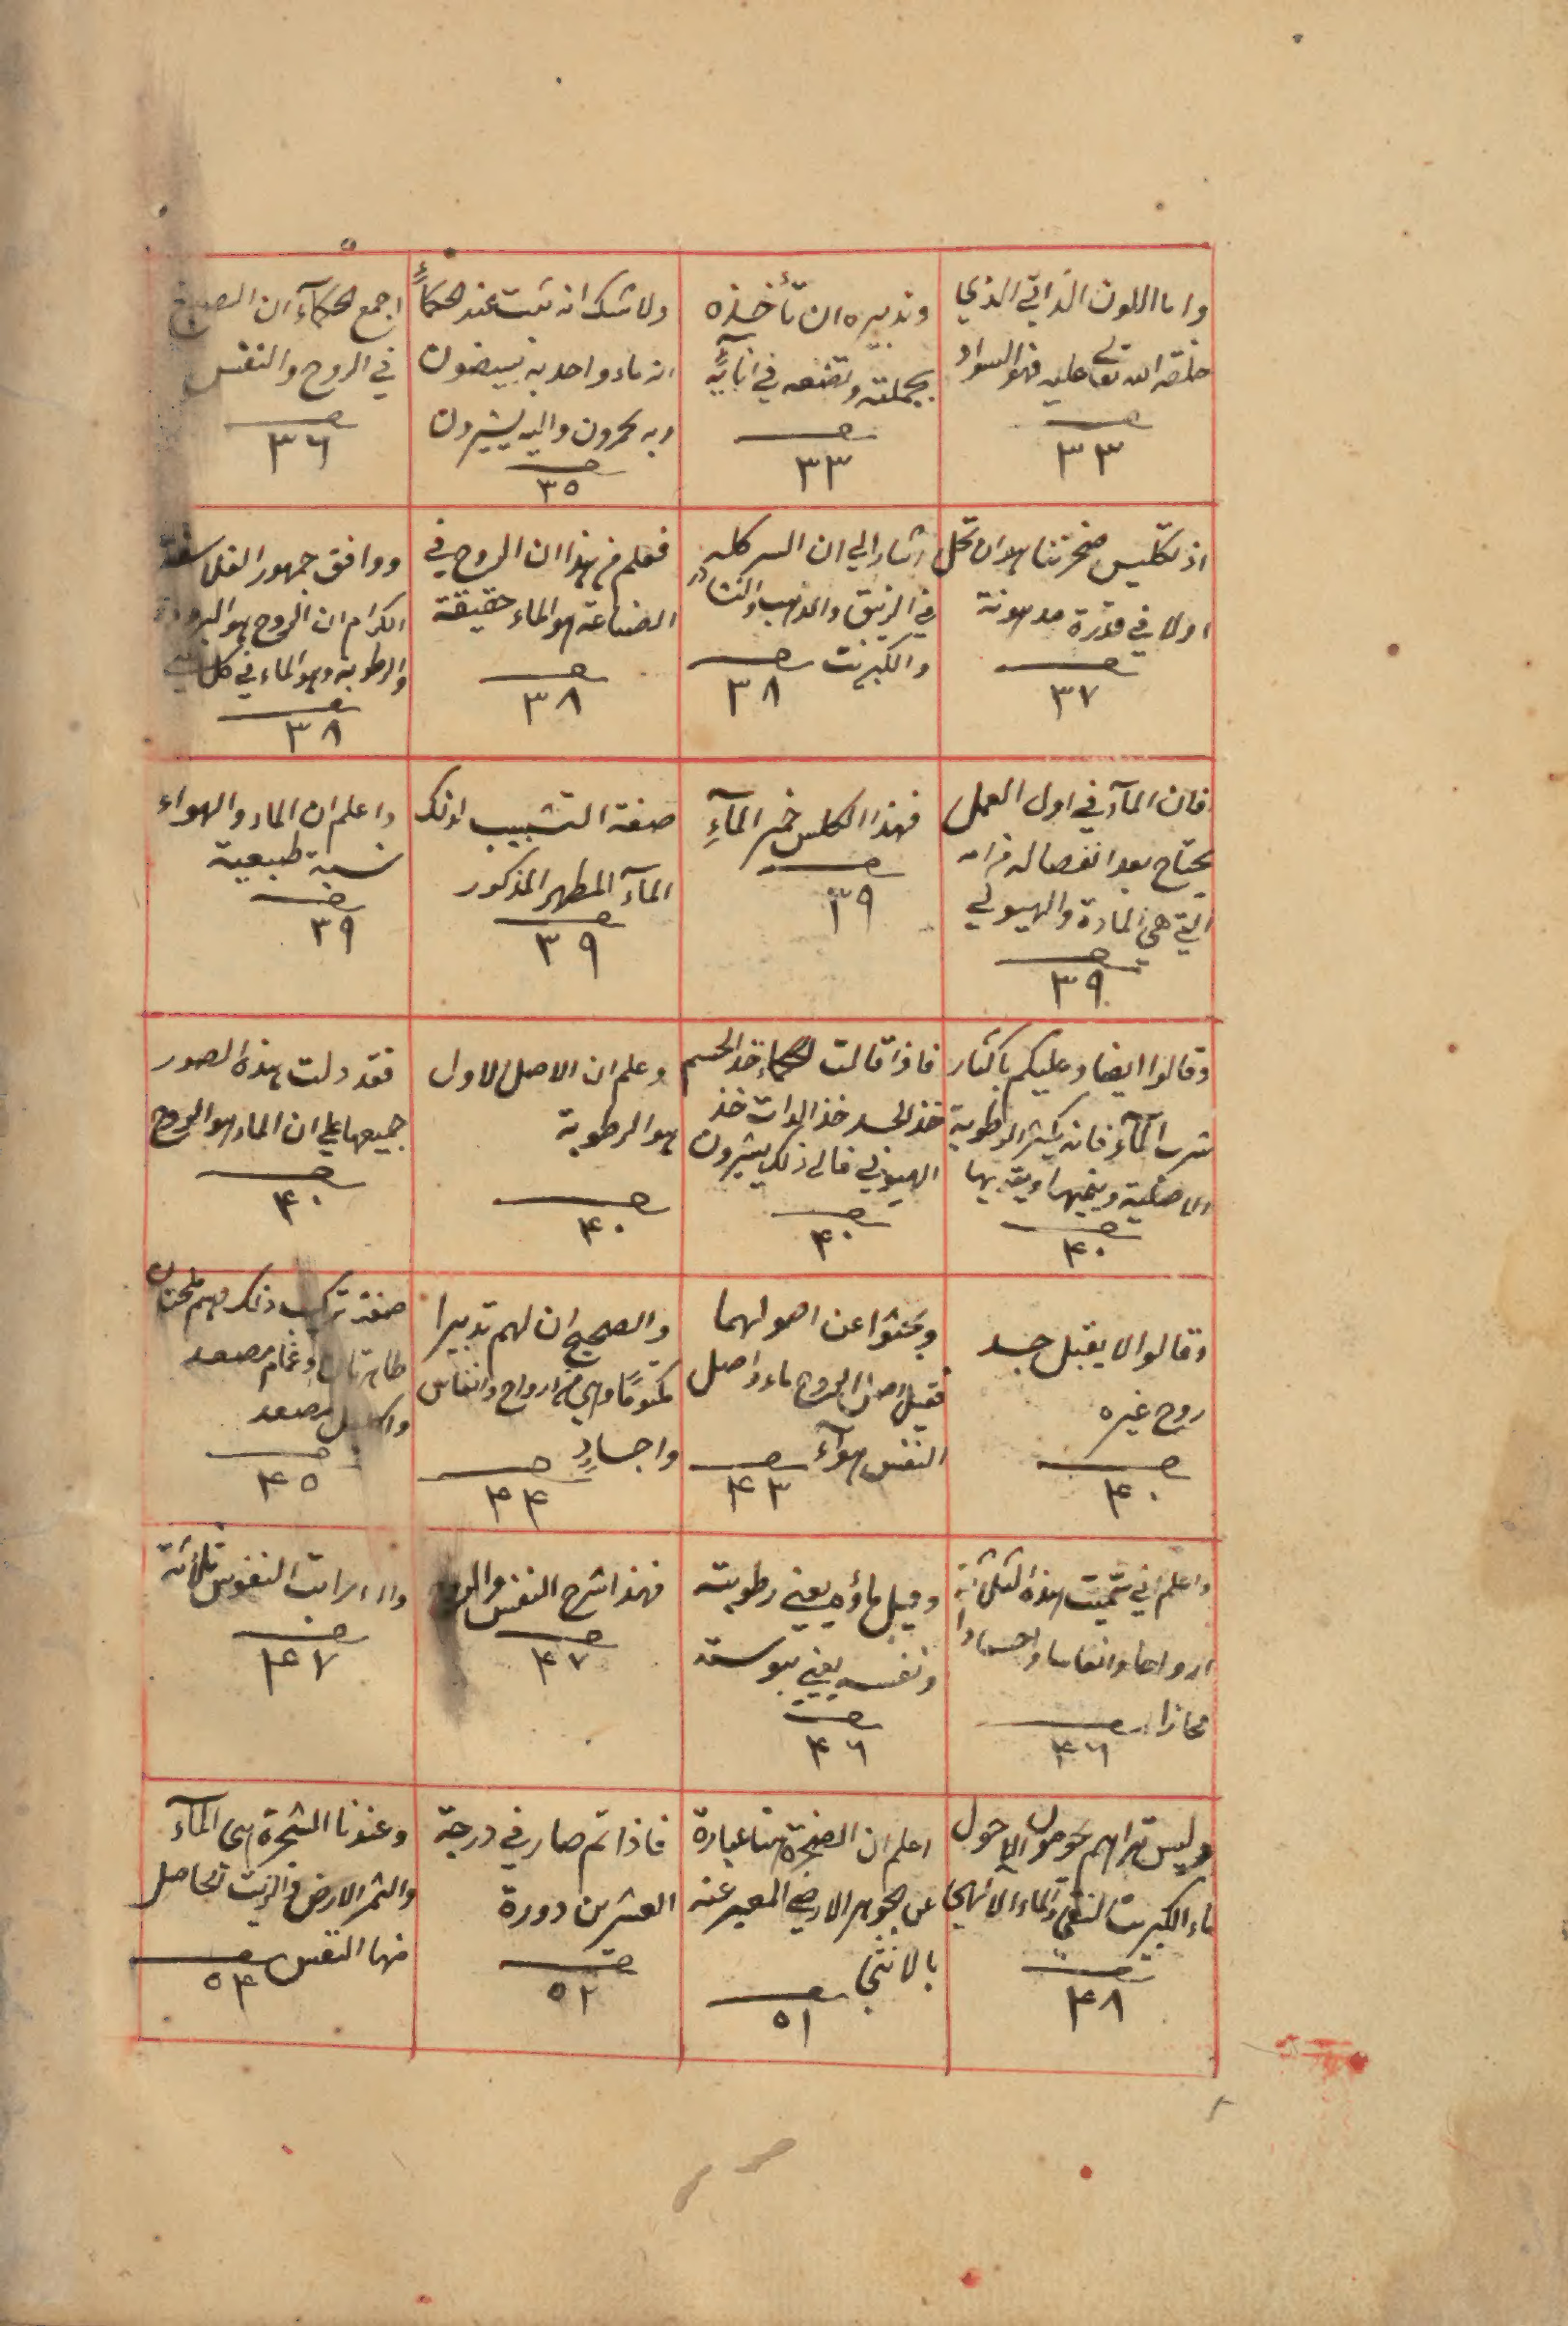 واما اللون الذاتي الذي
خلقه الله تعالى عليه فهو السواد
صـ
٣٣
وتدبيره ان تأخذه
بجملته وتضعه في انائه
صـ
٣٣
ولا شك انه ثبت عند الحكماء
انه ماء واحد به يبيضون
وبه يحمرون واليه يشيرون
صـ
٣٥
اجمع الحكماء ان الصبغ
في الروح والنفس
صـ
٣٦
اذ تكليس صخرتنا هو ان تحل
اولا في قدرة مدهونة
صـ
٣٧
اشار الي ان السر كله
في الزيبق والذهب والنشادر
والكبريت
صـ
٣٨
فعلم من هذا ان الروح في
الصناعة هو الماء حقيقة
صـ
٣٨
ووافق جمهور الفلاسفة
الكرام ان الروح هو البرودة
والرطوبة وهو الماء في كل شي
صـ
٣٨
فان المآء في اول العمل
يحتاج بعد انفصاله من امه
التي هي المادة والهيولي
صـ
٣٩
فهذا الكلس خمير المآءِ
صـ
٣٩
صفة التشبيب لذلك
المآء المطهر المذكور
صـ
٣٩
واعلم ان الماء والهواء
نسبة طبيعية
صـ
٣٩
وقالوا ايضا وعليكم باكثار
شرب المآء فانه يكثر الرطوبة
الاصلية وينميها ويقويها
صـ
۴٠
فاذا قالت الحكماء خذ الجسم
خذ الجسد خذ الذات خذ
الهيولي فالى ذلك يشيرون
صـ
۴٠
وعلم ان الاصل الاول
هو الرطوبة
صـ
۴٠
فقد دلت هذه الصور
جميعها علي ان الماء هو الروح
صـ
۴٠
وقالوا لا يقبل جسد
روح غيره
صـ
۴٠
وبحثوا عن اصولهما
فقيل اصل الروح ماء واصل
النفس هوآء
صـ
۴٣
والصحيح ان لهم تدبيرا
مكتومًا وهي من ارواح وانفاس
واجسادٍ
صـ
۴۴
صفة تركيب ذلك
مصعد
مصعد
صـ
۴٥
واعلم اني سميت هذه الثلاثة
ارواحا وانفاسا واجسادا
مجازا
صـ
۴٦
وقيل ماؤه يعني رطوبته
ونفسه يعني يبوسته
صـ
۴٦
فهذا شرح النفس والروح
صـ
۴٧
مراتب النفوس ثلاثة
صـ
۴٧
وليس تراهم
ماء الكبريت النقي والماء الالهي
صـ
۴٨
اعلم ان الصخرة هنا عبارة
عن الجوهر الارضي المعبر عنه
بالانثي
صـ
٥١
فاذا تم صار في درجة
العشرين دورة
صـ
٥٢
وعندنا الشجرة هى المآء
والثمر الارض والزيت الحاصل
منها النفس
صـ
٥۴